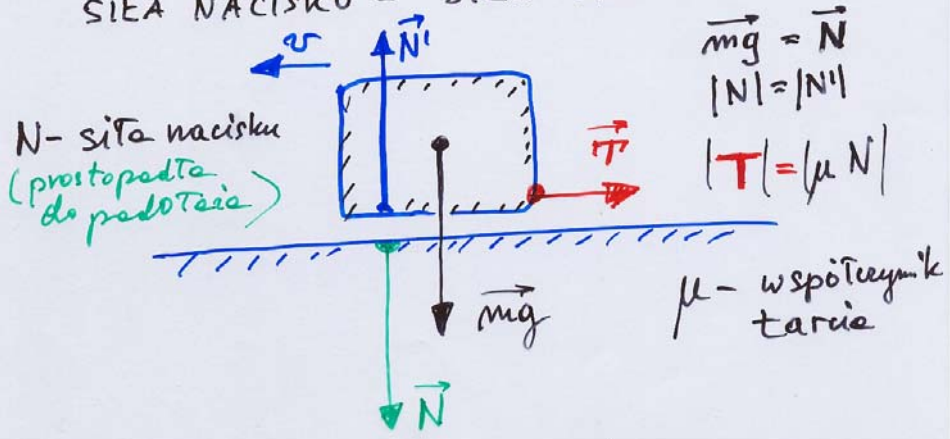 SIŁA NACISKU
v
N'
mg = N
|N|=|N'|
N- siła nacisku
(prostopadła
do podłoża)
T
|T|=|μ N|
mg
μ - współczynnik
tarcia
N